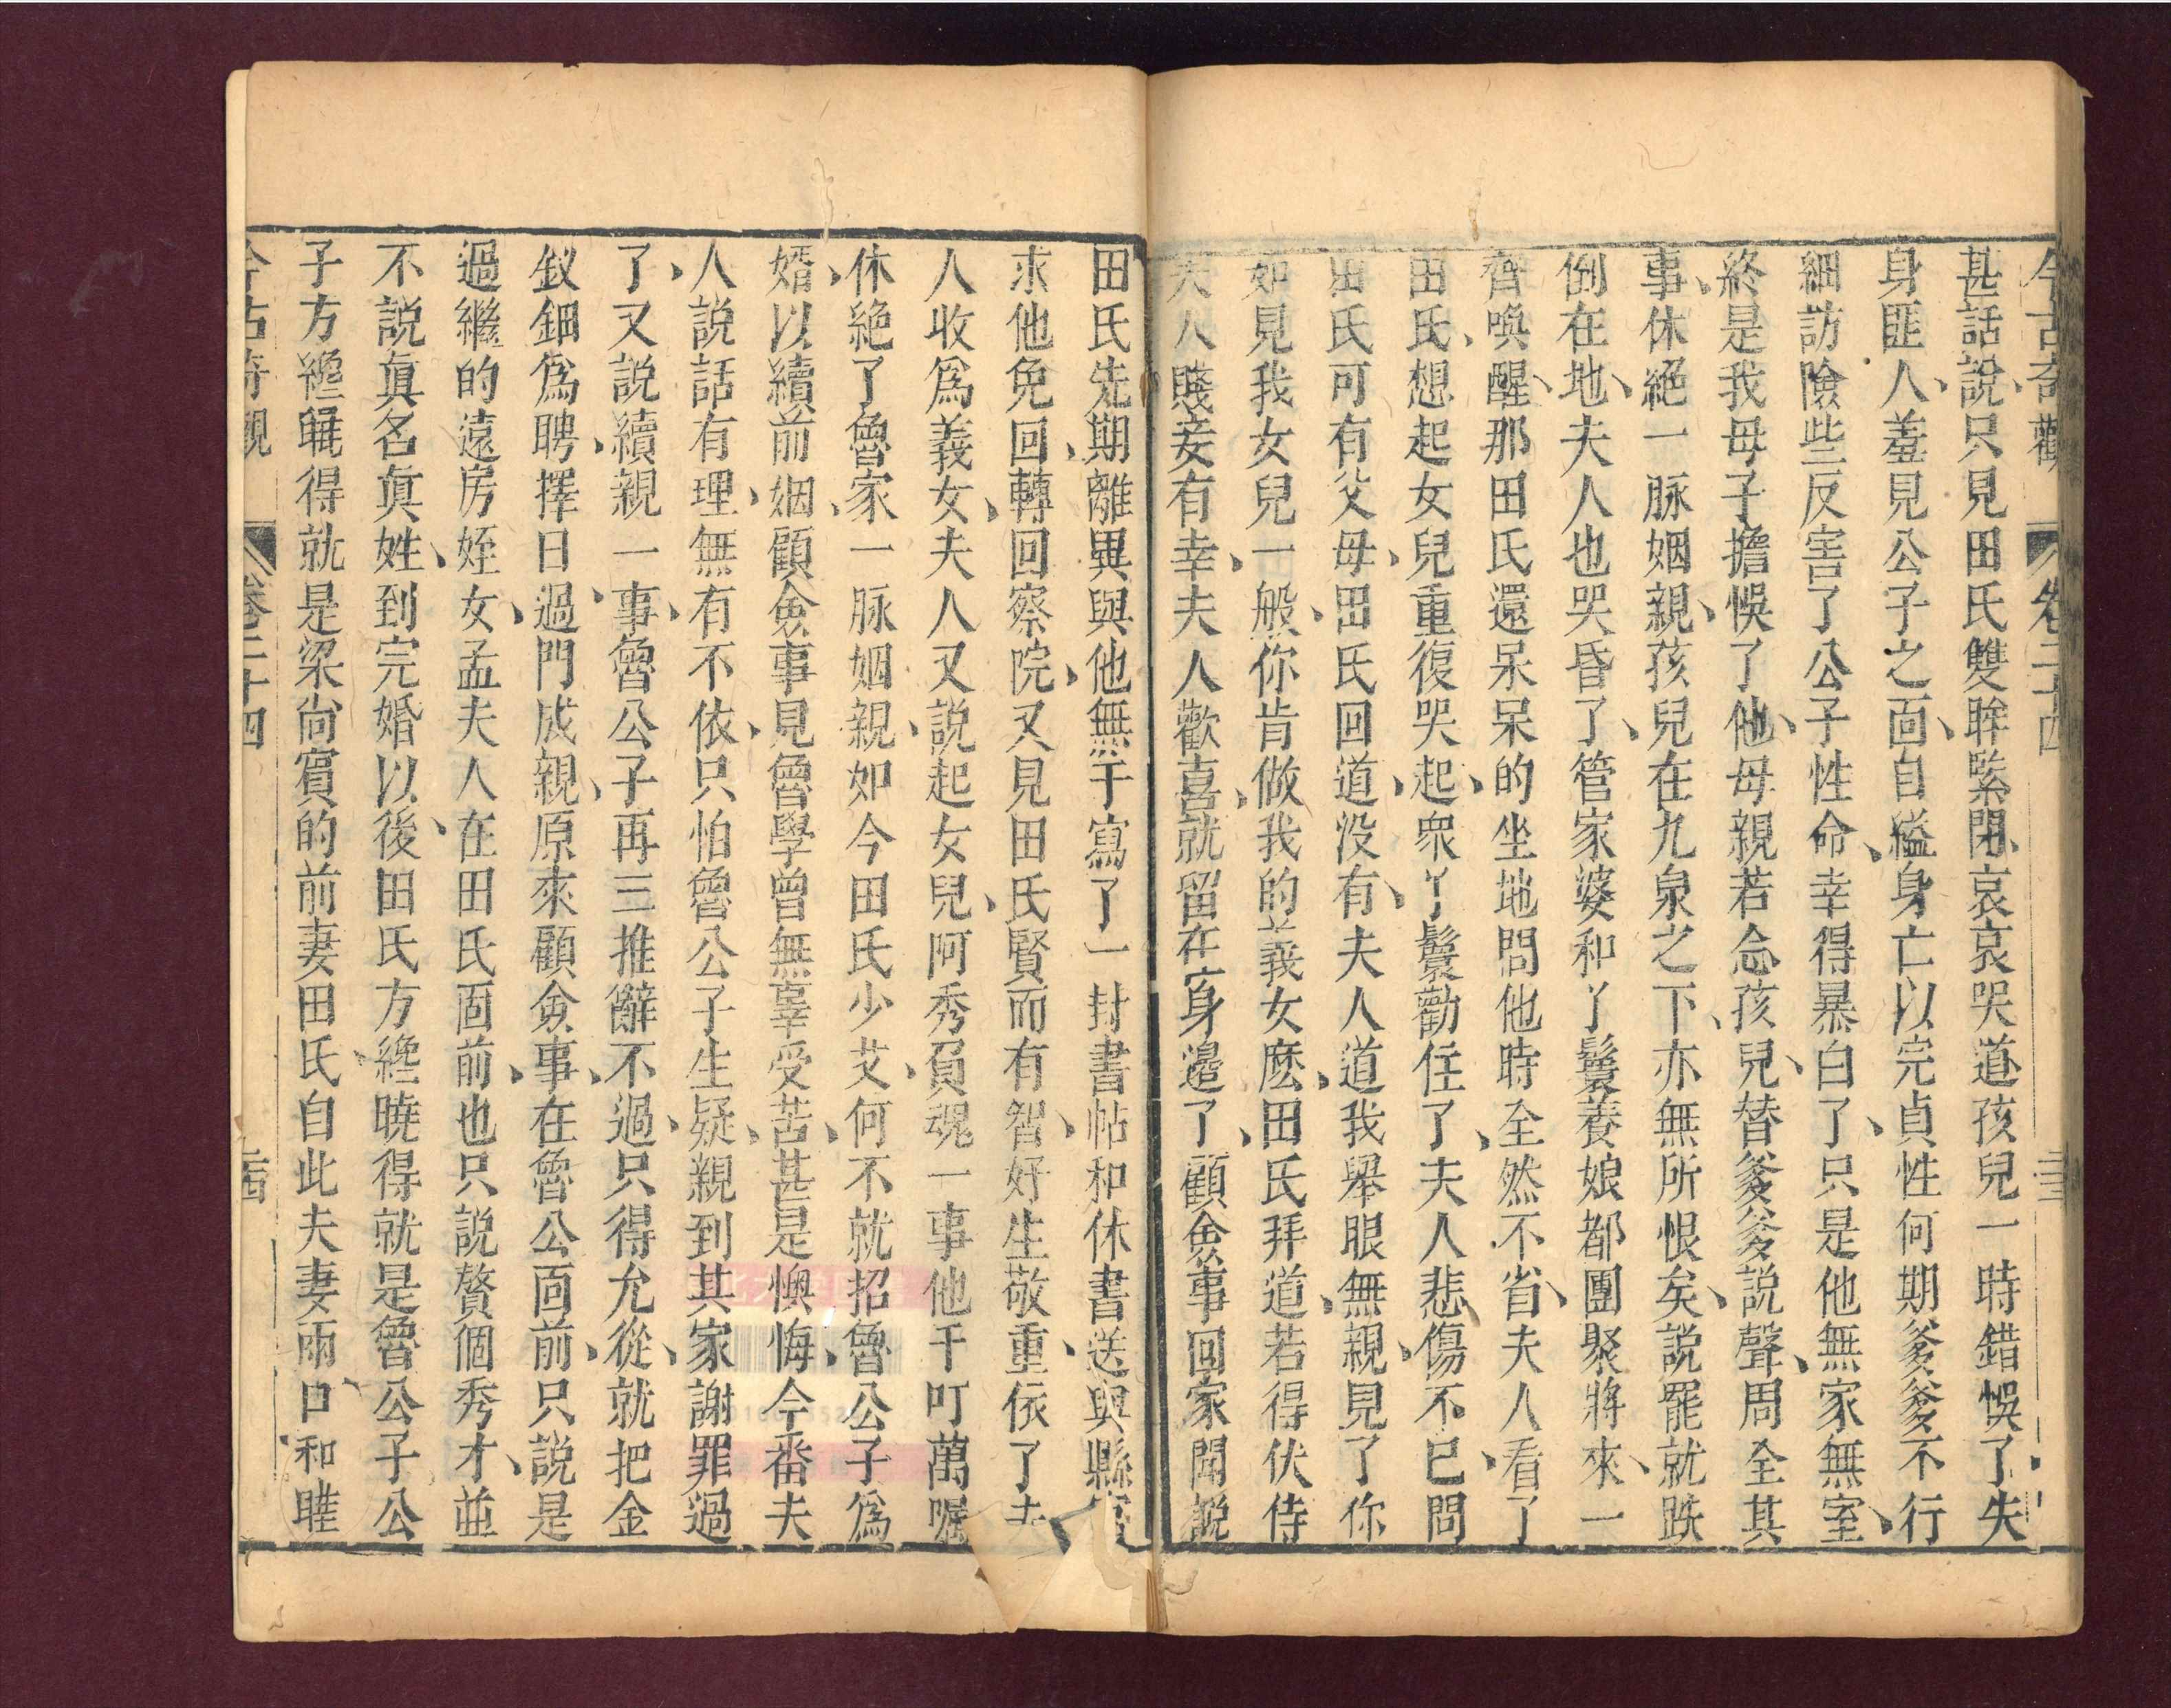 今古奇觀 卷二十四 三三
甚話說、只見田氏雙眸緊閉、哀哀哭道、孩兒一時錯悞了、失
身匪人、羞見公子之面、自縊身亡、以完貞性、何期爹爹不行
細訪、險些反害了公子性命、幸得暴白了、只是他無家無室、
終是我母子擔悞了他、母親若念孩兒、替爹爹說聲、周全其
事、休絕一脉姻親、孩兒在九泉之下、亦無所恨矣、說罷就跌
倒在地、夫人也哭昏了、管家婆和丫鬟養娘都團聚將來、一
齊喚醒、那田氏還呆呆的坐地、問他時全然不省、夫人看了
田氏、想起女兒、重復哭起、衆丫鬟勸住了、夫人悲傷不已、問
田氏可有父母、田氏回道、没有、夫人道、我舉眼無親、見了你
如見我女兒一般、你肯做我的義女麽、田氏拜道、若得伏侍
夫人、賤妾有幸、夫人歡喜、就留在身邉了、顧僉事回家、聞說
田氏先期離異、與他無干、寫了一封書帖、和休書送與縣官
求他免回、轉回察院、又見田氏賢而有智、好生敬重、依了夫
人收爲義女、夫人又說起女兒、阿秀負魂一事、他千叮萬囑
休絕了魯家一脉姻親、如今田氏少艾、何不就招魯公子爲
婿、以續前姻、顧僉事見魯學曾無辜受苦、甚是懊悔、今番夫
人說話有理、無有不依、只怕魯公子生疑、親到其家謝罪過
了、又說續親一事、魯公子再三推辭不過、只得允從、就把金
釵鈿爲聘、擇日過門成親、原來顧僉事在魯公面前、只說是
過繼的遠房姪女、孟夫人在田氏面前、也只說贅個秀才、並
不說眞名眞姓、到完婚以後、田氏方纔曉得就是魯公子、公
子方纔曉得就是梁尚賓的前妻田氏、自此夫妻兩口和睦
今古奇觀 卷二十四 三四